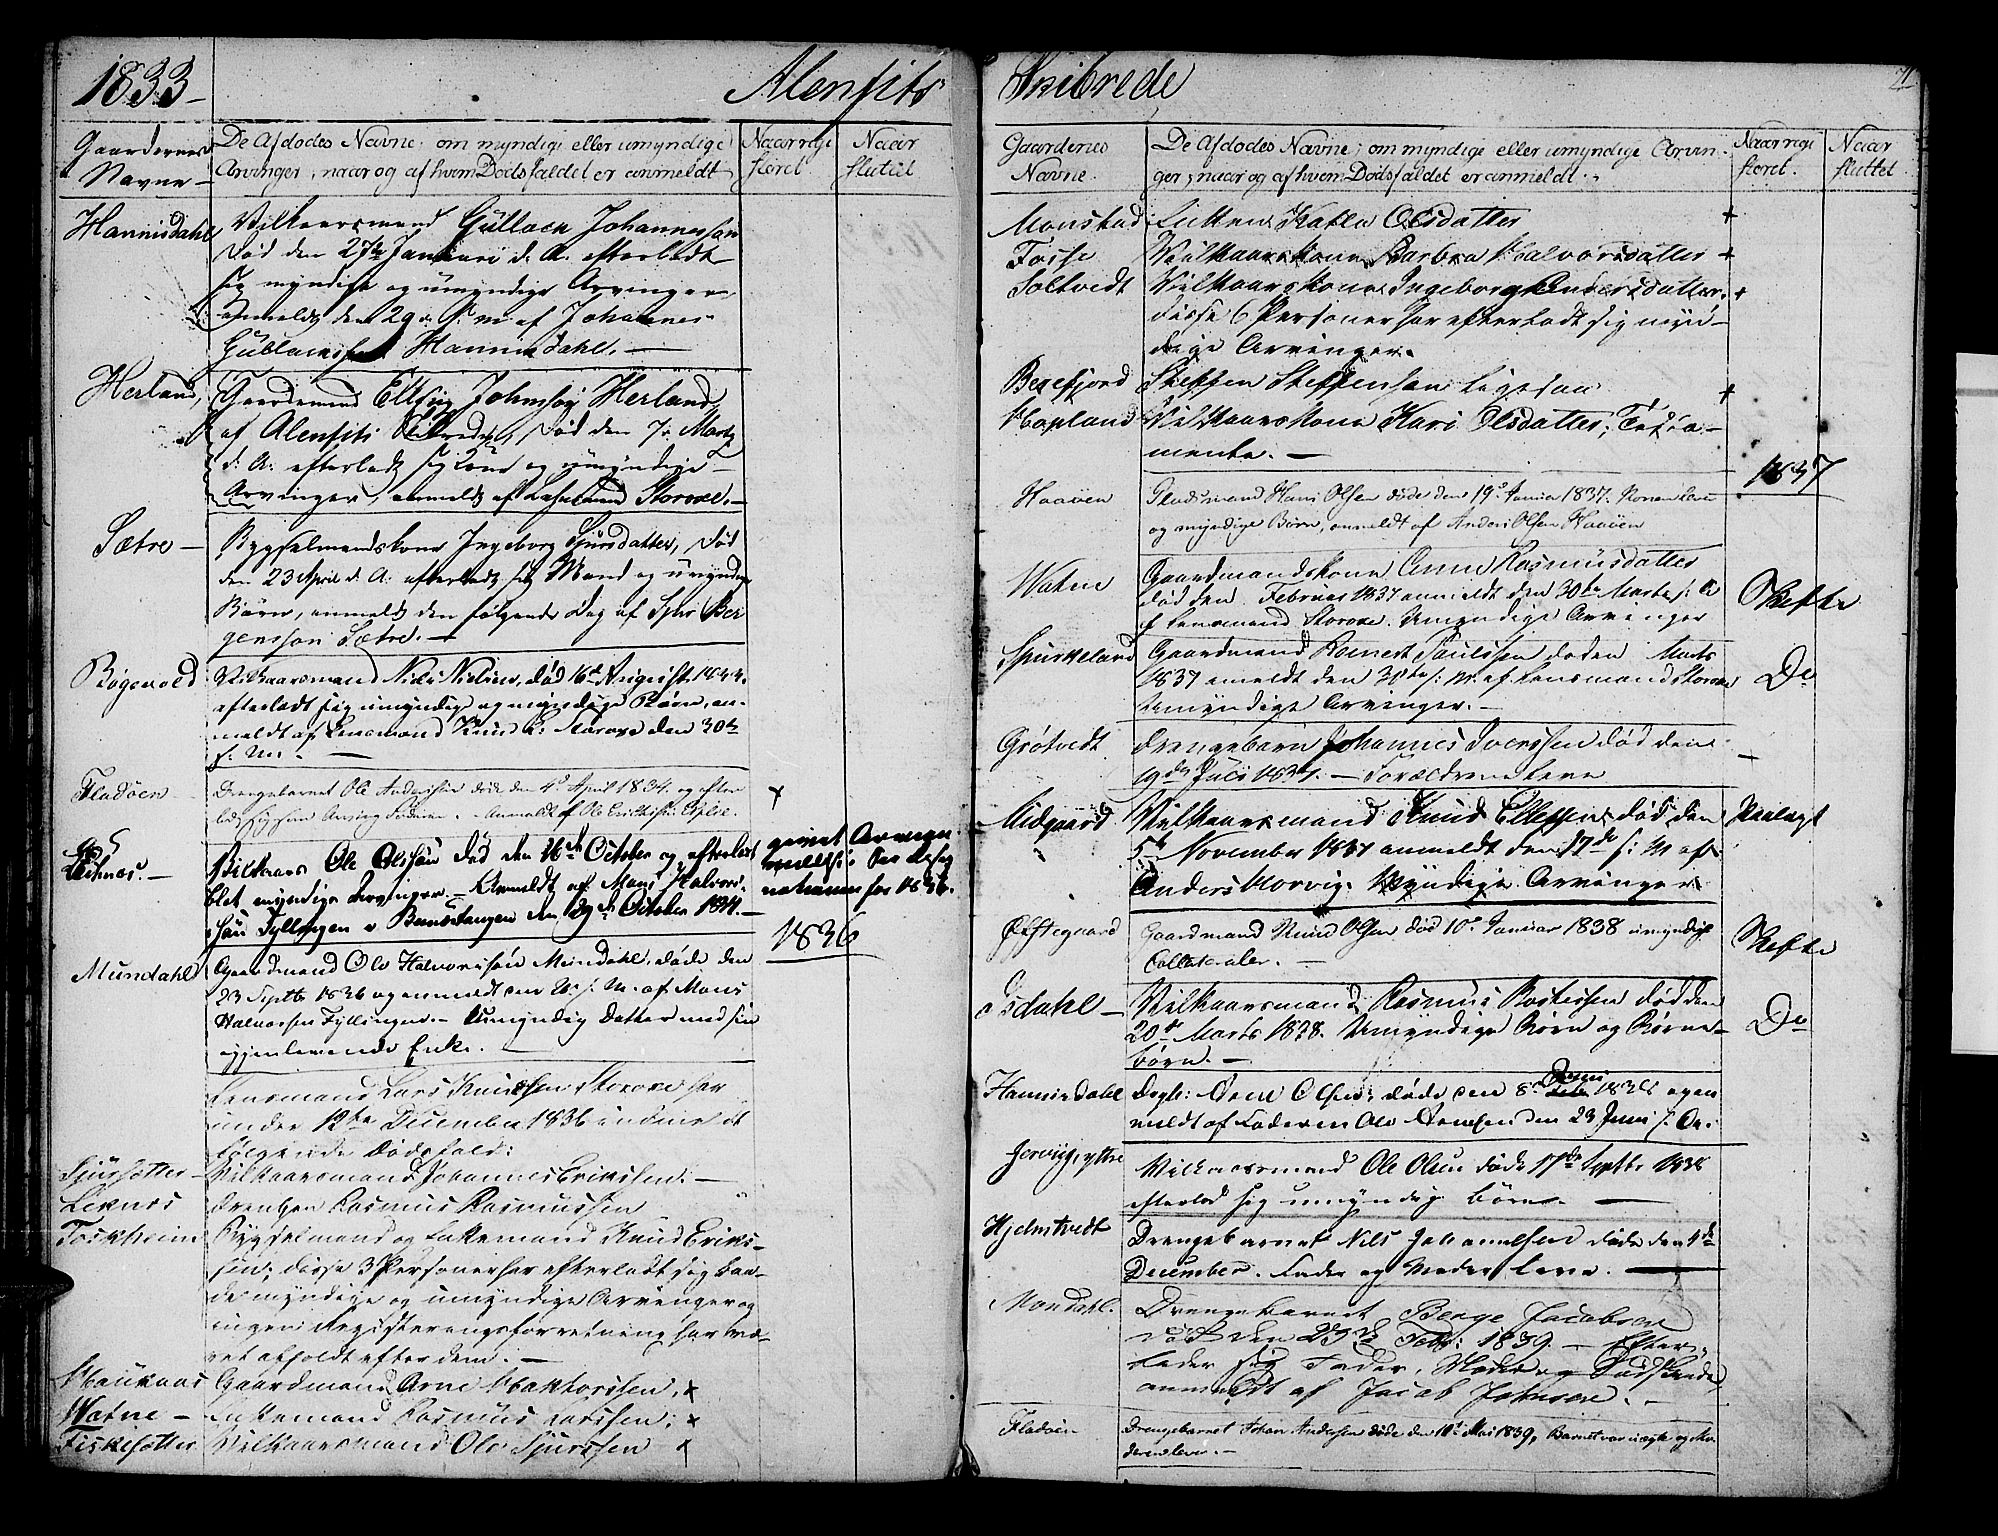 1833 –
Alenfits
Gaardernes Navne –
De Afdødes Navne; om myndige eller umyndige
Arvinger; naar og af hvem Dødsfaldet er anmeldt
Naar regi
steret
Naar
sluttet
Hannisdahl
Vilkaarsmand Gullach Johannessøn
død den 27de Januari d. A. efterladt
sig myndige og umyndige Arvinger
Anmeldt den 29 s. M. af Johannes
Gullachsen Hannisdahl. –
Herland,
Gaardmand Elling Johnssøn Herland,
af Alenfits Skibrede, død den 7. Marty
d. A. efterladt sig Kone og umyndige
Arvinger, anmeldt af Lensmand Storoxe. –
Sætre –
Bygselmandskone Ingeborg Sjursdatter, død
den 23 April d. A. efterladt sig Mand og umyndige
Børn, anmeldt den følgende Dag af Sjur Ber
genssøn Sætre. –
Bøgevold
Vilkaarsmand Niels Nielsen, død 16de August 1833.
efterladt sig umyndige og myndige Børn, an-
meldt af Lensmand Knud L. Storoxe den 30te
s. M. –
Fladøen
Drengebarnet Ole Andersen døde den 4de April 1834. og efter
lod sig som Arving Faderen. – Anmeldt af Ole Erichsen
+
Leknes. –
Vilkaars Ole Olssøn død den 16de October og efterladt
blot myndige Arvinger. – Anmeldt af Mons Halvors-
søn Fyllingen den 29de October 1834. –
1836
Mundahl
Gaardmand Ole Halvorssøn Mundahl døde den
23 Septbr 1836 og anmeldt den s. M. af Mons
Halvorssen Fyllingen. – Umyndig Datter med sin
igjenlevende Enke. –
Lensmand Lars Knudssen Storoxe har
under 12te December 1836 indmeldt
følgende Dødsfald:
Sjursætter
Vilkaarsmand Johannes Erikssen. –
Leknes
Drengen Rasmus Rasmussen
Toskheim
Bygselmand og Enkemand Knud Eriks-
sen; disse 3 Personer har efterladt sig baa-
de myndige og umyndige Arvinger og
ingen Registreringsforretning har væ-
ret afholdt efter dem. –
Gaardmand Arne +
Watne –
Enkemand Rasmus Larssen; +
Fiskesætter
Vilkaarsmand Ole Sjurssen +
Skibrede
71
Gaardenes
Navne.
De Afdødes Navne; om myndige eller umyndige Arvin-
ger; naar og af hvem Dødsfaldet er anmeldt.
Naar regi
steret.
Naar
sluttet.
Monstad
Enken Kalla Olsdatter +
Fosse
Vilkaarskone Barbra Halvorsdatter +
Toltvedt
Vilkaarskone Ingeborg Andersdatter. +
disse 6 Personer har efterladt sig myn-
dige Arvinger.
Bergfjord
Steffen Steffensøn ligesaa +
Hopland
Vilkaarskone Kari Olsdatter, Testa-
mente. –
1837
Haaøen
Gaardmand Hans Olsen døde den 19de Januar 1837. Konen lever
og myndige Børn, anmeldt af Anders Olsen Haaøen
Watne
Gaardmandskone Anne Rasmusdatter
død den Februar 1837 anmeldt den 30te Marts s. A
af Lensmand Storoxe. Umyndige Arvinger
Skifte
Spurkeland
Gaardmand Bernt Paulssen døden Marts
1837 anmeldt den 30te s. M. af Lensmand Storoxe
Umyndige Arvinger. –
Do
Grøtvedt
Drengebarn Johannes Iverssen død den
19de Juli 1837. – Forældrene leve
–
Midgaard
Vilkaarsmand Knud Ellefsen, død den
5te November 1837 anmeldt den 17de s. M af
Anders Norvig. Myndige Arvinger
Henlagt
Øfstegaard
Gaardmand Knud Olsen død 10de Januar 1838 umyndige
Collateraler. –
Skifte
Isdahl –
Vilkaarsmand Rasmus Bastessen død den
20de Marts 1838. Umyndige Børn og Børne-
børn. –
Do
Hannisdahl
Dgbt: Arne Olsen, døde den 8de Juni 1838 anm
meldt af Faderen Ole Arnesen den 23 Juni s. A.
Gjervig, yttre
Vilkaarsmand Ole Olsen døde 17de Septbr 1838
efterlod sig umyndige Børn. –
Hjelmtvedt
Drengebarnet Nils Johannessen døde den 4de
December. Fader og Moder leve. –
Mondahl.
Drengebarnet Berge Jacobsen
død den 23de Febr: 1839. – Efter-
lader sig Fader, Moder og Sødskende,
anmeldt af Jacob Johnsen. –
Fladøen
Drengebarnet Johan Andersen døde den 10de Mai 1839, Barnet var uægte og Mo
deren lever. –